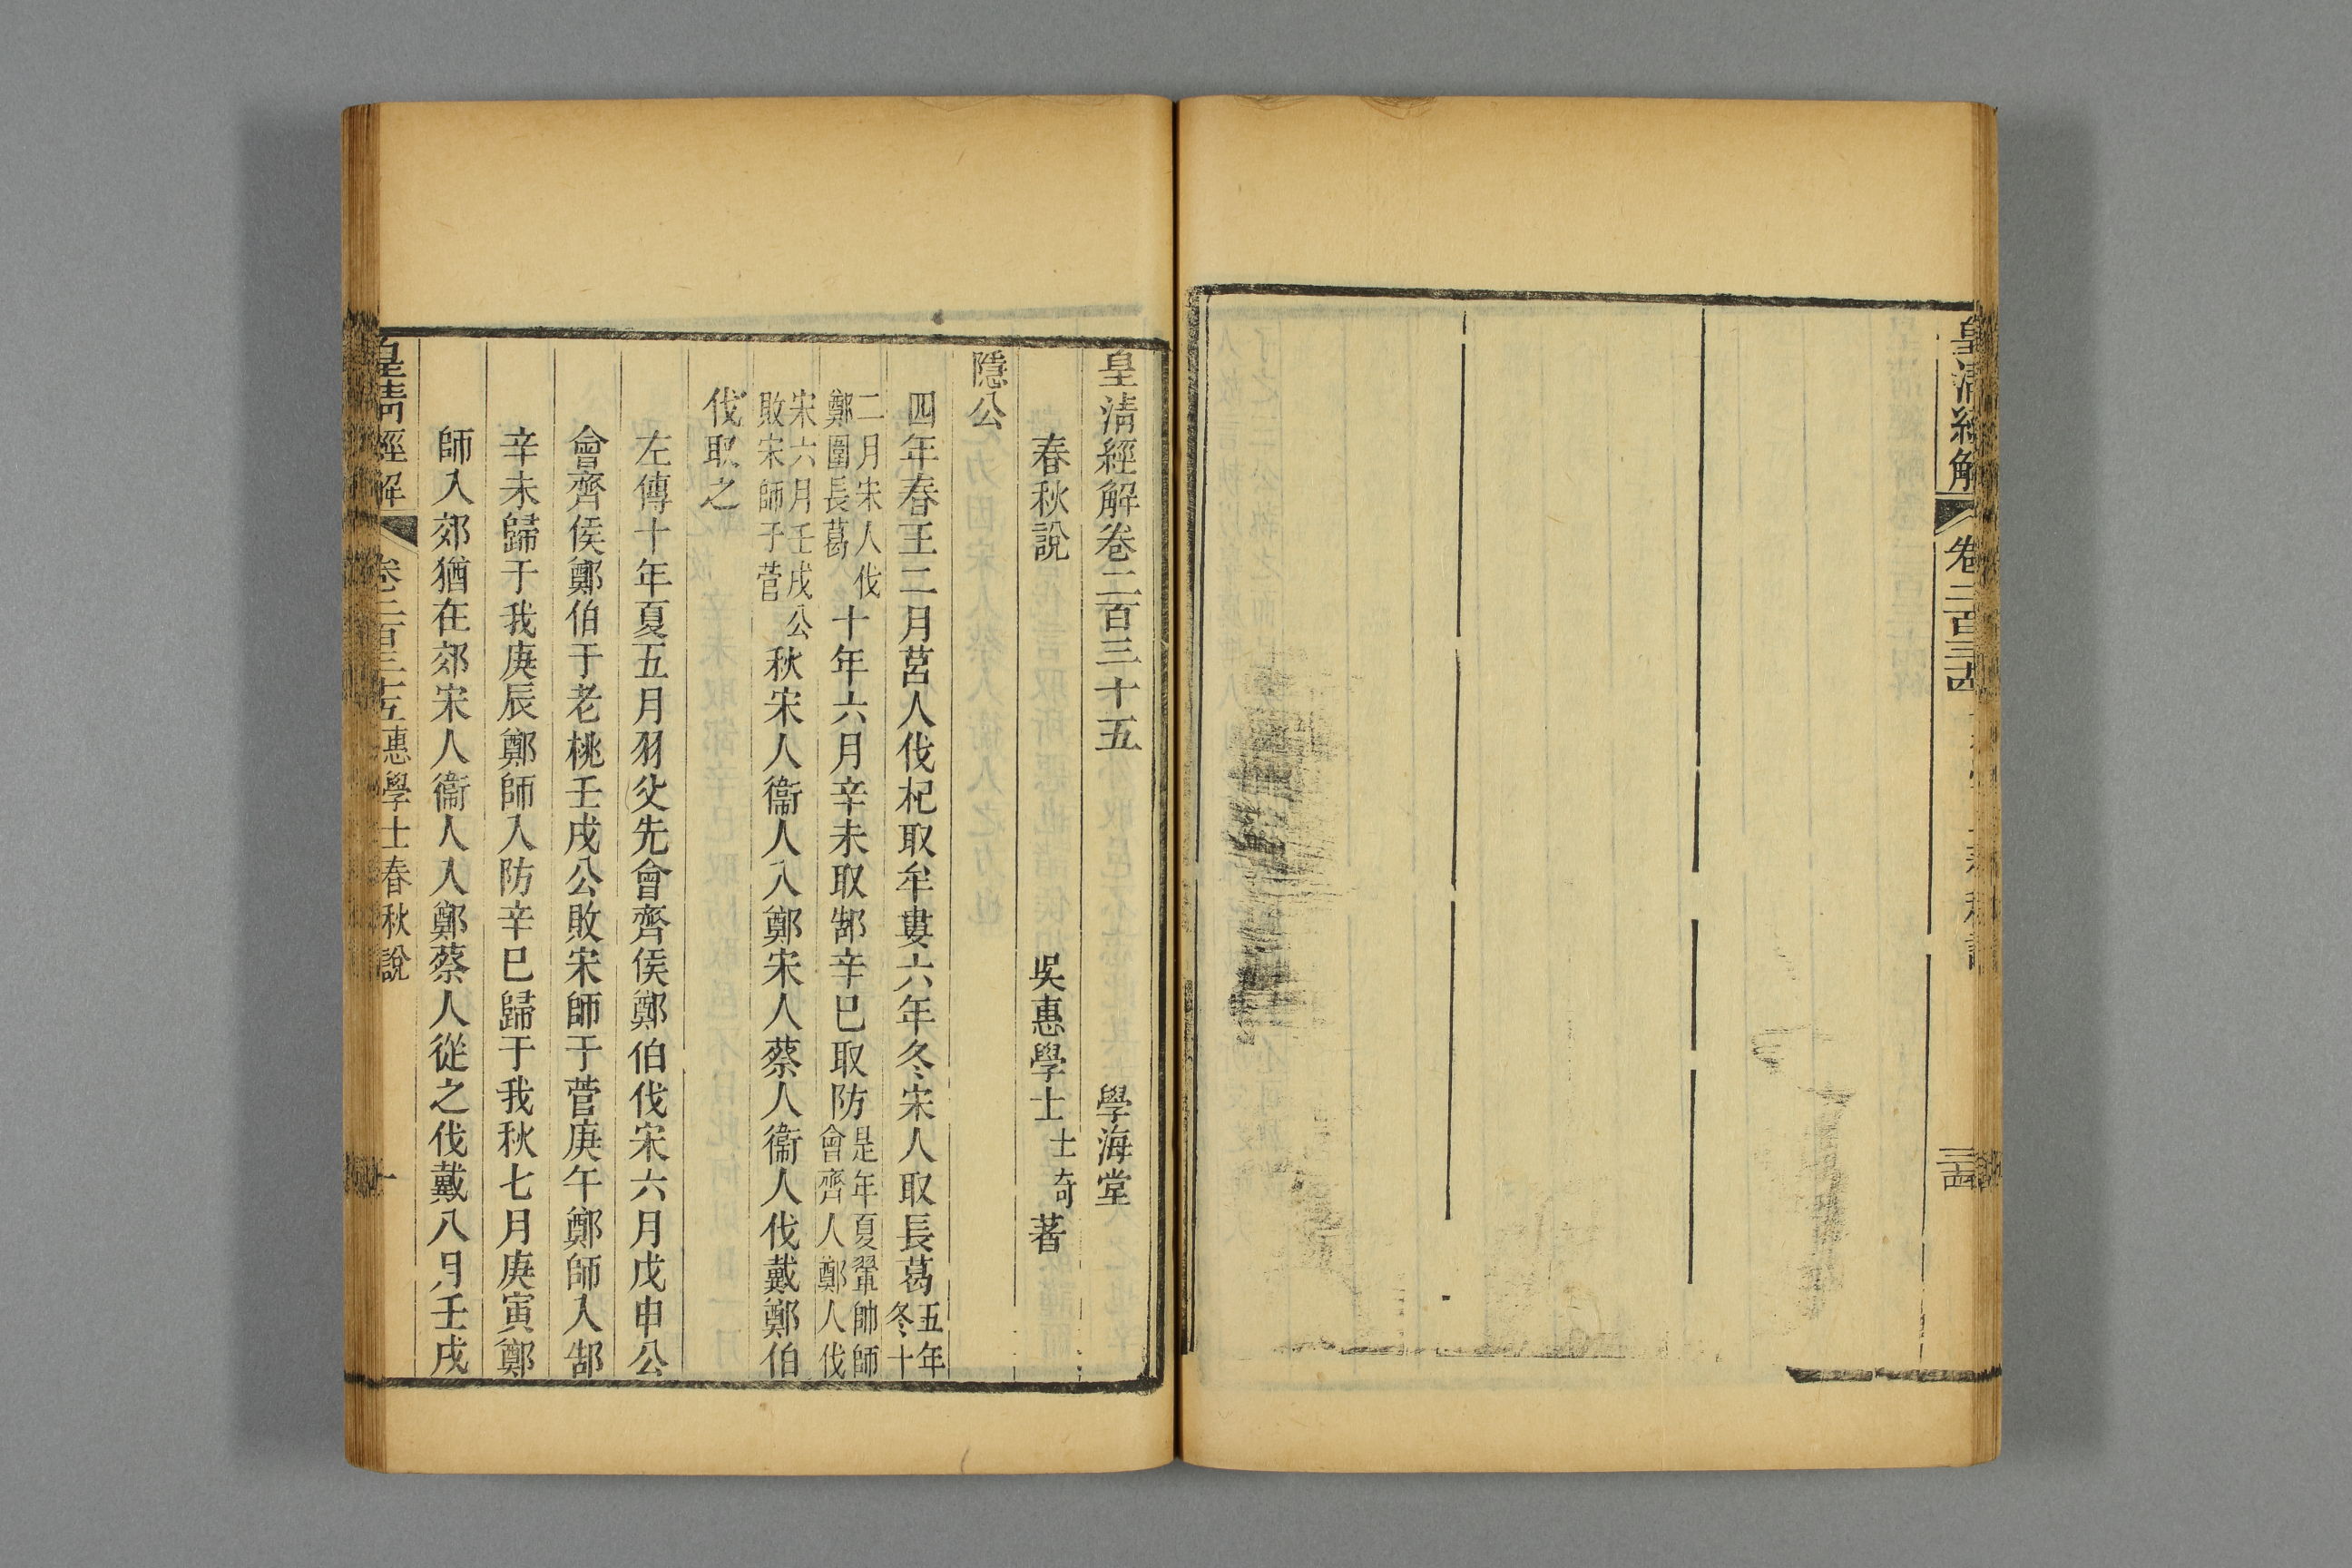 皇清經解
卷二百三十四
三十四
皇清經解卷二百三十五
學海堂
春秋說
吳惠學士士奇著
隱公
四年春王二月莒人伐杞取牟婁六年冬宋人取長葛五年冬十
二月宋人伐鄭圍長葛十年六月辛未取郜辛巳取防是年夏翬帥師會齊人鄭人伐
宋六月壬戌公敗宋師于菅秋宋人衞人入鄭宋人蔡人衞人伐戴鄭伯
伐取之
左傳十年夏五月羽父先會齊侯鄭伯伐宋六月戊申公
會齊侯鄭伯于老桃壬戌公敗宋師于菅庚午鄭師入郜
辛未歸于我庚辰鄭師入防辛巳歸于我秋七月庚寅鄭
師入郊猶在郊宋人衞人入鄭蔡人從之伐戴八月壬戌
皇清經解
卷二百三十五惠學士春秋說
一